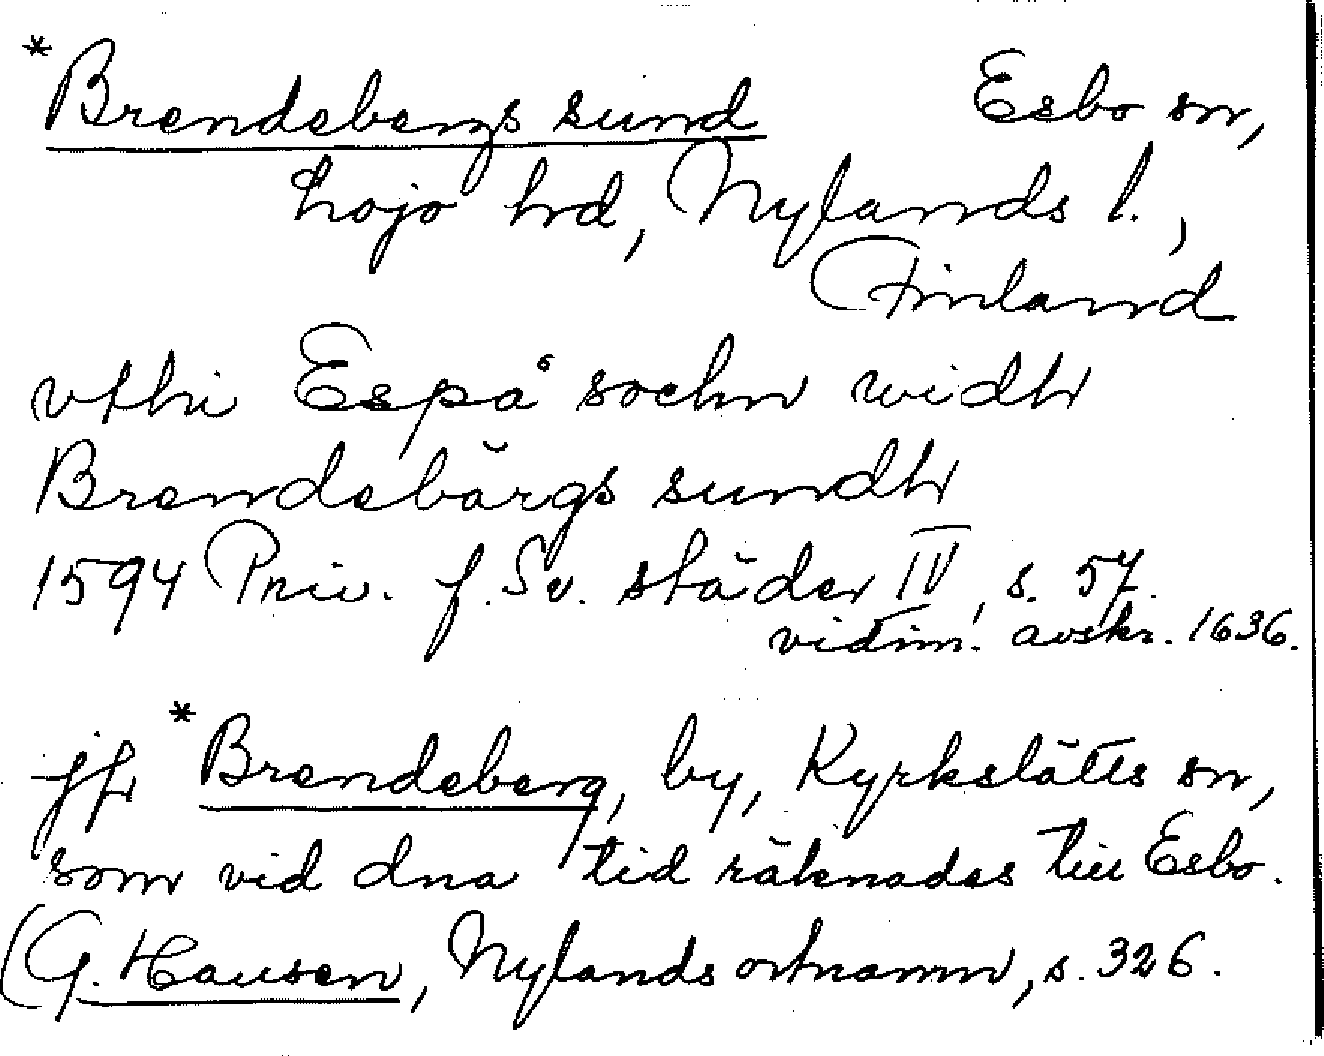 *Brendebergs sund Esbo sn,
Lojo hrd, Nylands l.,
Finland
vthi Espå sochn widh
Brendebärgs sundh
1594 Priv. f. Sv. städer IV, s. 57.
vidim. avskr. 1636.
jfr *Brendeberg, by, Kyrkslätts sn,
som vid dna tid räknades till Esbo.
(G. Hausen, Nylands ortnamn, s. 326.